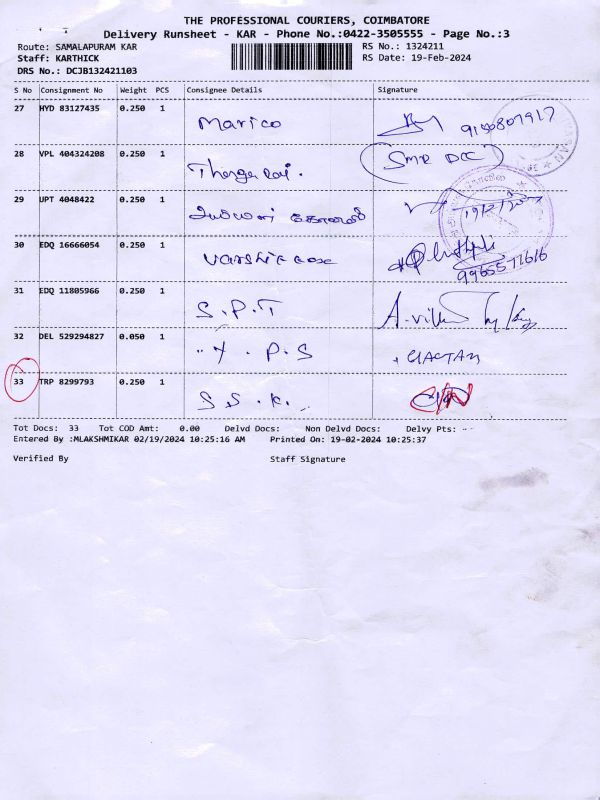 THE PROFESSIONAL COURIERS, COIMBATORE
Delivery Runsheet - KAR - Phone No.:0422-3505555 - Page No.:3
Route: SAMALAPURAM KAR
RS No.: 1324211
Staff: KARTHICK
RS Date: 19-Feb-2024
DRS No.: DCJB132421103
S No Consignment No Weight PCS Consignee Details Signature
27 HYD 83127435 0.250 1 Marico
28 VPL 404324208 0.250 1 SMR DCC
29 UPT 4048422 0.250 1
30 EDQ 16666054 0.250 1 9965577616
31 EDQ 11805966 0.250 1 S.P.T
32 DEL 529294827 0.050 1 P.S
33 TRP 8299793 0.250 1 S.S.K.
Tot Docs: 33 Tot COD Amt: 0.00 Delvd Docs: Non Delvd Docs: Delvy Pts: --
Entered By :MLAKSHMIKAR 02/19/2024 10:25:16 AM Printed On: 19-02-2024 10:25:37
Verified By Staff Signature